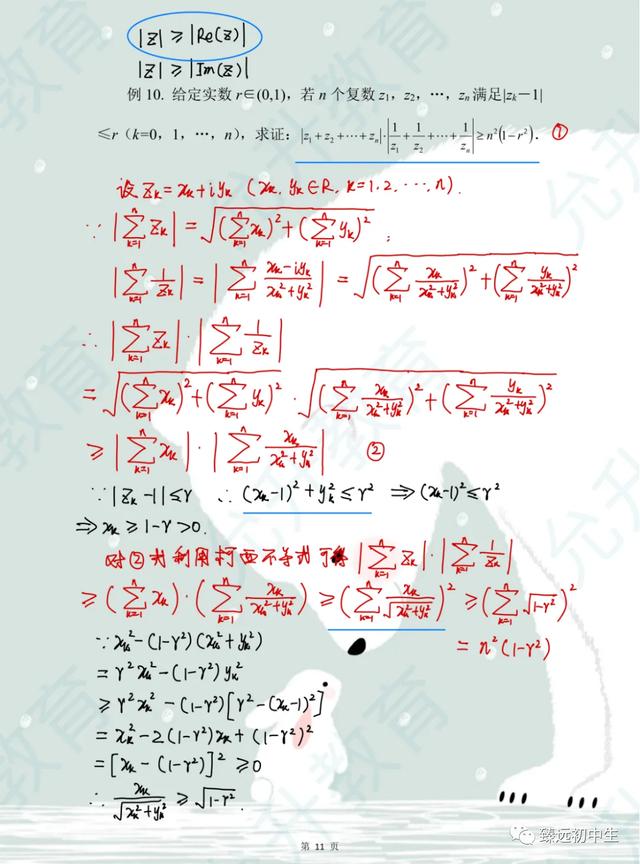 |Z| ≥ |Re(z)|
|Z| ≥ |Im(z)|
例 10. 给定实数 r∈(0,1)，若 n 个复数 z₁，z₂，…，zₙ 满足|zₖ−1|
≤r（k=0，1，…，n），求证：|z₁+z₂+⋯+zₙ|·|1/z₁+1/z₂+⋯+1/zₙ|≥n²(1−r²)． ①
设 Zₖ = xₖ+iyₖ (xₖ, yₖ∈R, k=1,2,⋯,n).
∵ |∑ₖ₌₁ⁿ Zₖ| = √((∑ₖ₌₁ⁿ xₖ)²+(∑ₖ₌₁ⁿ yₖ)²) ;
|∑ₖ₌₁ⁿ 1/Zₖ| = |∑ₖ₌₁ⁿ (xₖ−iyₖ)/(xₖ²+yₖ²)| = √((∑ₖ₌₁ⁿ xₖ/(xₖ²+yₖ²))²+(∑ₖ₌₁ⁿ yₖ/(xₖ²+yₖ²))²)
∴ |∑ₖ₌₁ⁿ Zₖ|·|∑ₖ₌₁ⁿ 1/Zₖ|
= √((∑ₖ₌₁ⁿ xₖ)²+(∑ₖ₌₁ⁿ yₖ)²) · √((∑ₖ₌₁ⁿ xₖ/(xₖ²+yₖ²))²+(∑ₖ₌₁ⁿ yₖ/(xₖ²+yₖ²))²)
≥ |∑ₖ₌₁ⁿ xₖ|·|∑ₖ₌₁ⁿ xₖ/(xₖ²+yₖ²)| ②
∵ |Zₖ−1|≤r ∴ (xₖ−1)²+yₖ²≤r² ⇒ (xₖ−1)²≤r²
⇒ xₖ ≥ 1−r >0.
对②式利用柯西不等式可得 |∑ₖ₌₁ⁿ Zₖ|·|∑ₖ₌₁ⁿ 1/Zₖ|
≥ (∑ₖ₌₁ⁿ xₖ)·(∑ₖ₌₁ⁿ xₖ/(xₖ²+yₖ²)) ≥ (∑ₖ₌₁ⁿ xₖ/√(xₖ²+yₖ²))² ≥ (∑ₖ₌₁ⁿ √(1−r²))²
= n²(1−r²)
∵ xₖ²−(1−r²)(xₖ²+yₖ²)
= r²xₖ²−(1−r²)yₖ²
≥ r²xₖ²−(1−r²)[r²−(xₖ−1)²]
= xₖ²−2(1−r²)xₖ+(1−r²)²
= [xₖ−(1−r²)]² ≥0
∴ xₖ/√(xₖ²+yₖ²) ≥ √(1−r²).
第 11 页
臻远初中生
允升教育